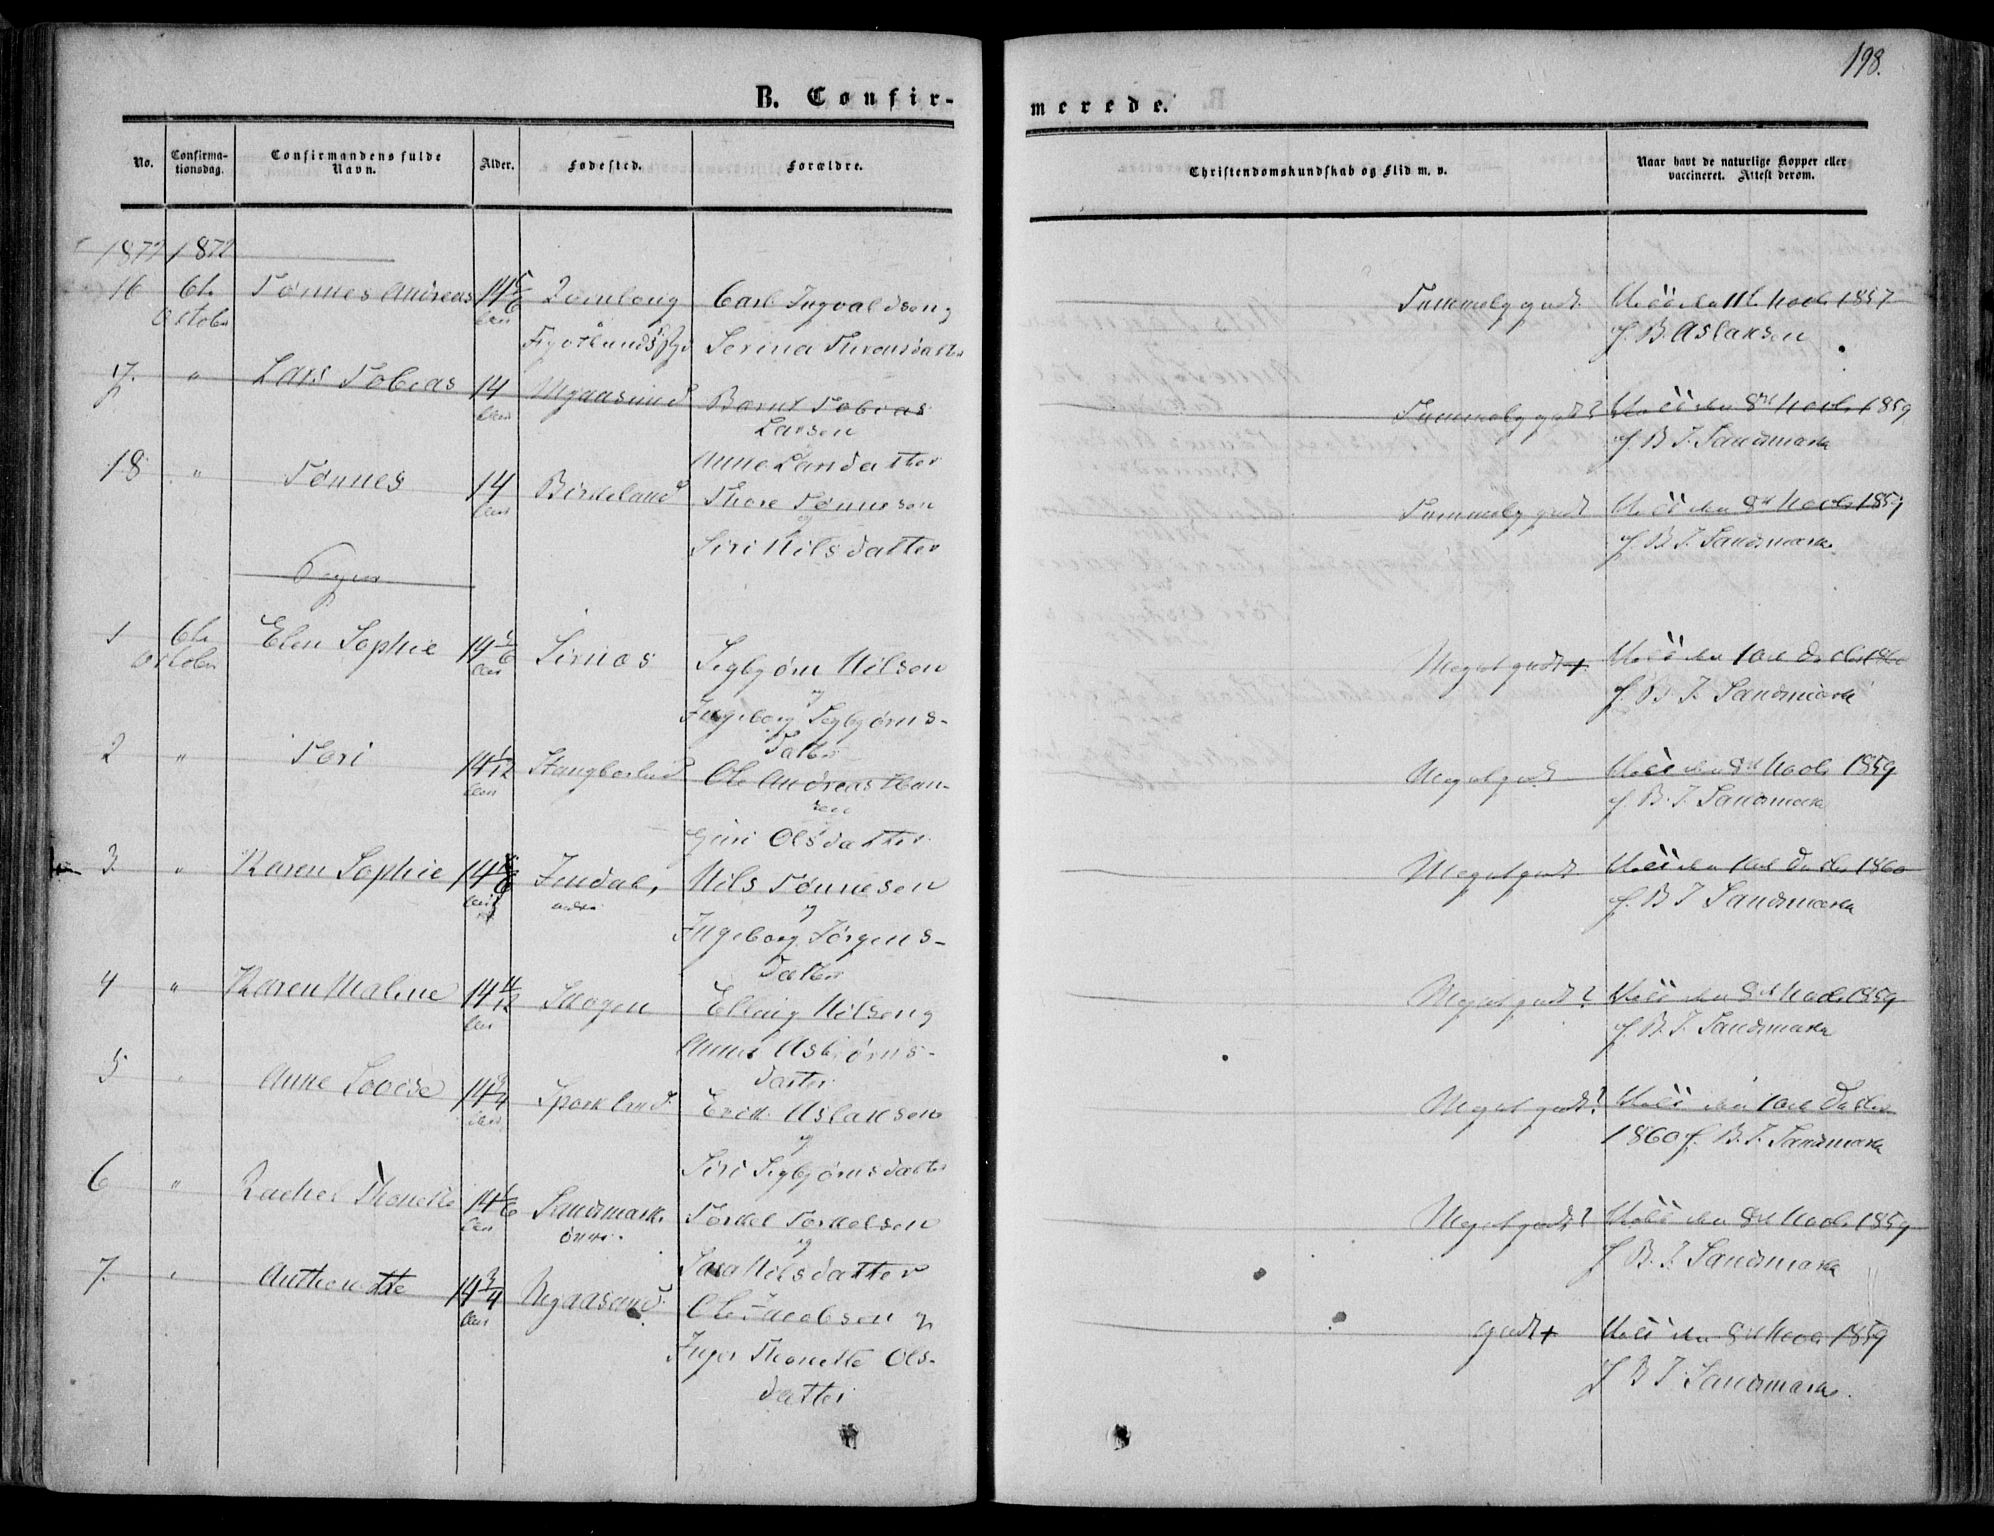 198.
B. Confir-
merede.
No.
Confirma-
tionsdag.
Confirmandens fulde
Navn.
Alder.
Fødested.
Forældre.
Christendomskundskab og Flid m. v.
Naar havt de naturlige Kopper eller
vaccineret. Attest derom.
1872 1872
16 6te Tønnes Andreas 14 5/6 Carl Ingvaldsen og
October Aar
Serina Thronsdatter
Temmelig godt. 1857
f. B. Aslaksen
17. " Lars Tobias 14 Aar Mgaasund Bernt Tobias
Larsen
Anne Larsdatter
Temmelig godt? 8de 1859
f. B. T. Sandsmark
18 " Tønnes 14 Aar Birkeland Thore Tønnesen
og
Siri Nilsdatter
Temmelig godt 8de 1859
f. B. T. Sandsmark
Piger
1 6te Elen Sophie 14 5/6 Sirnæs Segbjørn Nilsen
October Aar og
Ingeborg Segbjørns-
datter
Meget godt+. 10de 1860
f. B. T. Sandsmark
2 " Tori 14 1/12 Aar Stangborlid Ole Andreas Han-
sen
Giri Olsdatter
Meget godt 8de 1859
f. B. T. Sandsmark
3. " Karen Sophie 14 Aar Indal, Nils Tønnesen
nedre og
Ingeborg Jørgens-
datter
Meget godt 10de 1860
f. B. T. Sandsmark
4 " Karen Malene 14 11/12 Aar Skogen Elling Nilsen og
Anne Asbjørns-
datter
Meget godt? 8de 1859
f. B. T. Sandsmark
5 " Anne Lovise 14 3/4 Aar Erik Aslaksen
og
Siri Segbjørnsdatter
Meget godt? 10de
1860 f. B. T. Sandsmark
6 " Rachel Thonette 14 1/6 Aar Sandsmark Torkel Torkelsen
øvre. og
Sara Nilsdatter
Meget godt? 8de 1859
f. B. T. Sandsmark
7. " Anthonette 14 3/4 Aar Mgaasund. Ole Jacobsen og
Inger Thonette Ols-
datter
godt+ 8de 1859
f. B. T. Sandsmark.